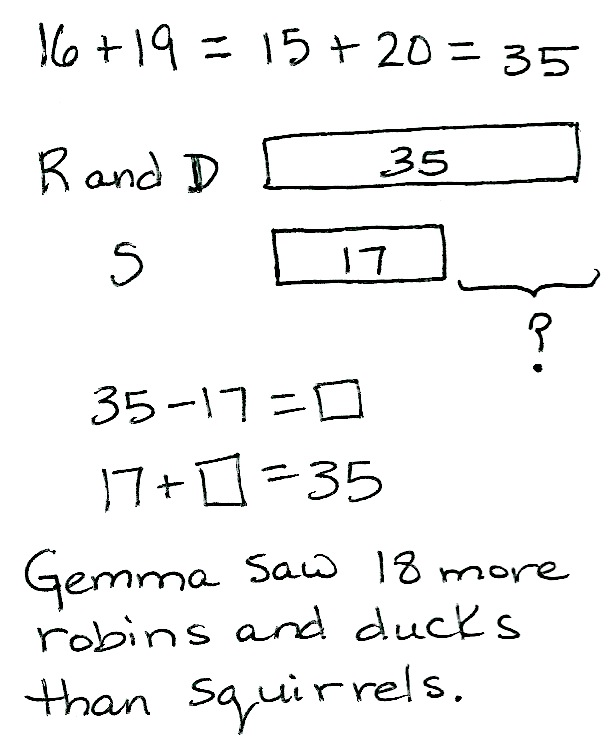 16 + 19 = 15 + 20 = 35
R and D 35
S 17
?
35 - 17 = □
17 + □ = 35
Gemma saw 18 more
robins and ducks
than squirrels.